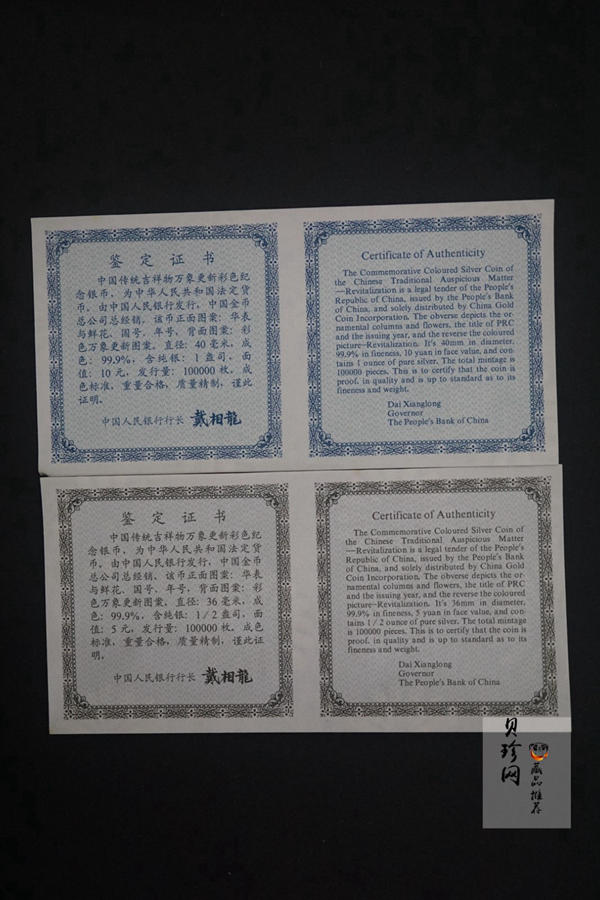 鉴定证书
中国传统吉祥物万象更新彩色纪
念银币，为中华人民共和国法定货
币。由中国人民银行发行，中国金币
总公司总经销，该币正面图案：华表
与鲜花、国号、年号，背面图案：彩
色万象更新图案。直径：40毫米，成
色：99.9%，含纯银：1盎司，面
值：10元，发行量：100000枚。成
色标准，重量合格，质量精制，谨此
证明。
中国人民银行行长 戴相龍
Certificate of Authenticity
The Commemorative Coloured Silver Coin of
the Chinese Traditional Auspicious Matter
—Revitalization is a legal tender of the People's
Republic of China, issued by the People's Bank
of China, and solely distributed by China Gold
Coin Incorporation. The obverse depicts the or-
namental columns and flowers, the title of PRC
and the issuing year, and the reverse the coloured
picture—Revitalization. It's 40mm in diameter,
99.9% in fineness, 10 yuan in face value, and con-
tains 1 ounce of pure silver. The total mintage is
100000 pieces. This is to certify that the coin is
proof, in quality and is up to standard as to its
fineness and weight.
Dai Xianglong
Governor
The People's Bank of China
鉴定证书
中国传统吉祥物万象更新彩色纪
念银币，为中华人民共和国法定货
币。由中国人民银行发行，中国金币
总公司总经销，该币正面图案：华表
与鲜花、国号、年号，背面图案：彩
色万象更新图案。直径：36毫米，成
色：99.9%，含纯银：1/2盎司，面
值：5元，发行量：100000枚。成色
标准，重量合格，质量精制，谨此证
明。
中国人民银行行长 戴相龍
Certificate of Authenticity
The Commemorative Coloured Silver Coin of
the Chinese Traditional Auspicious Matter
—Revitalization is a legal tender of the People's
Republic of China, issued by the People's Bank
of China, and solely distributed by China Gold
Coin Incorporation. The obverse depicts the or-
namental columns and flowers, the title of PRC
and the issuing year, and the reverse the coloured
picture—Revitalization. It's 36mm in diameter,
99.9% in fineness, 5 yuan in face value, and con-
tains 1/2 ounce of pure silver. The total mintage
is 100000 pieces. This is to certify that the coin is
proof, in quality and is up to standard as to its
fineness and weight.
Dai Xianglong
Governor
The People's Bank of China
贝珍网
藏品推荐